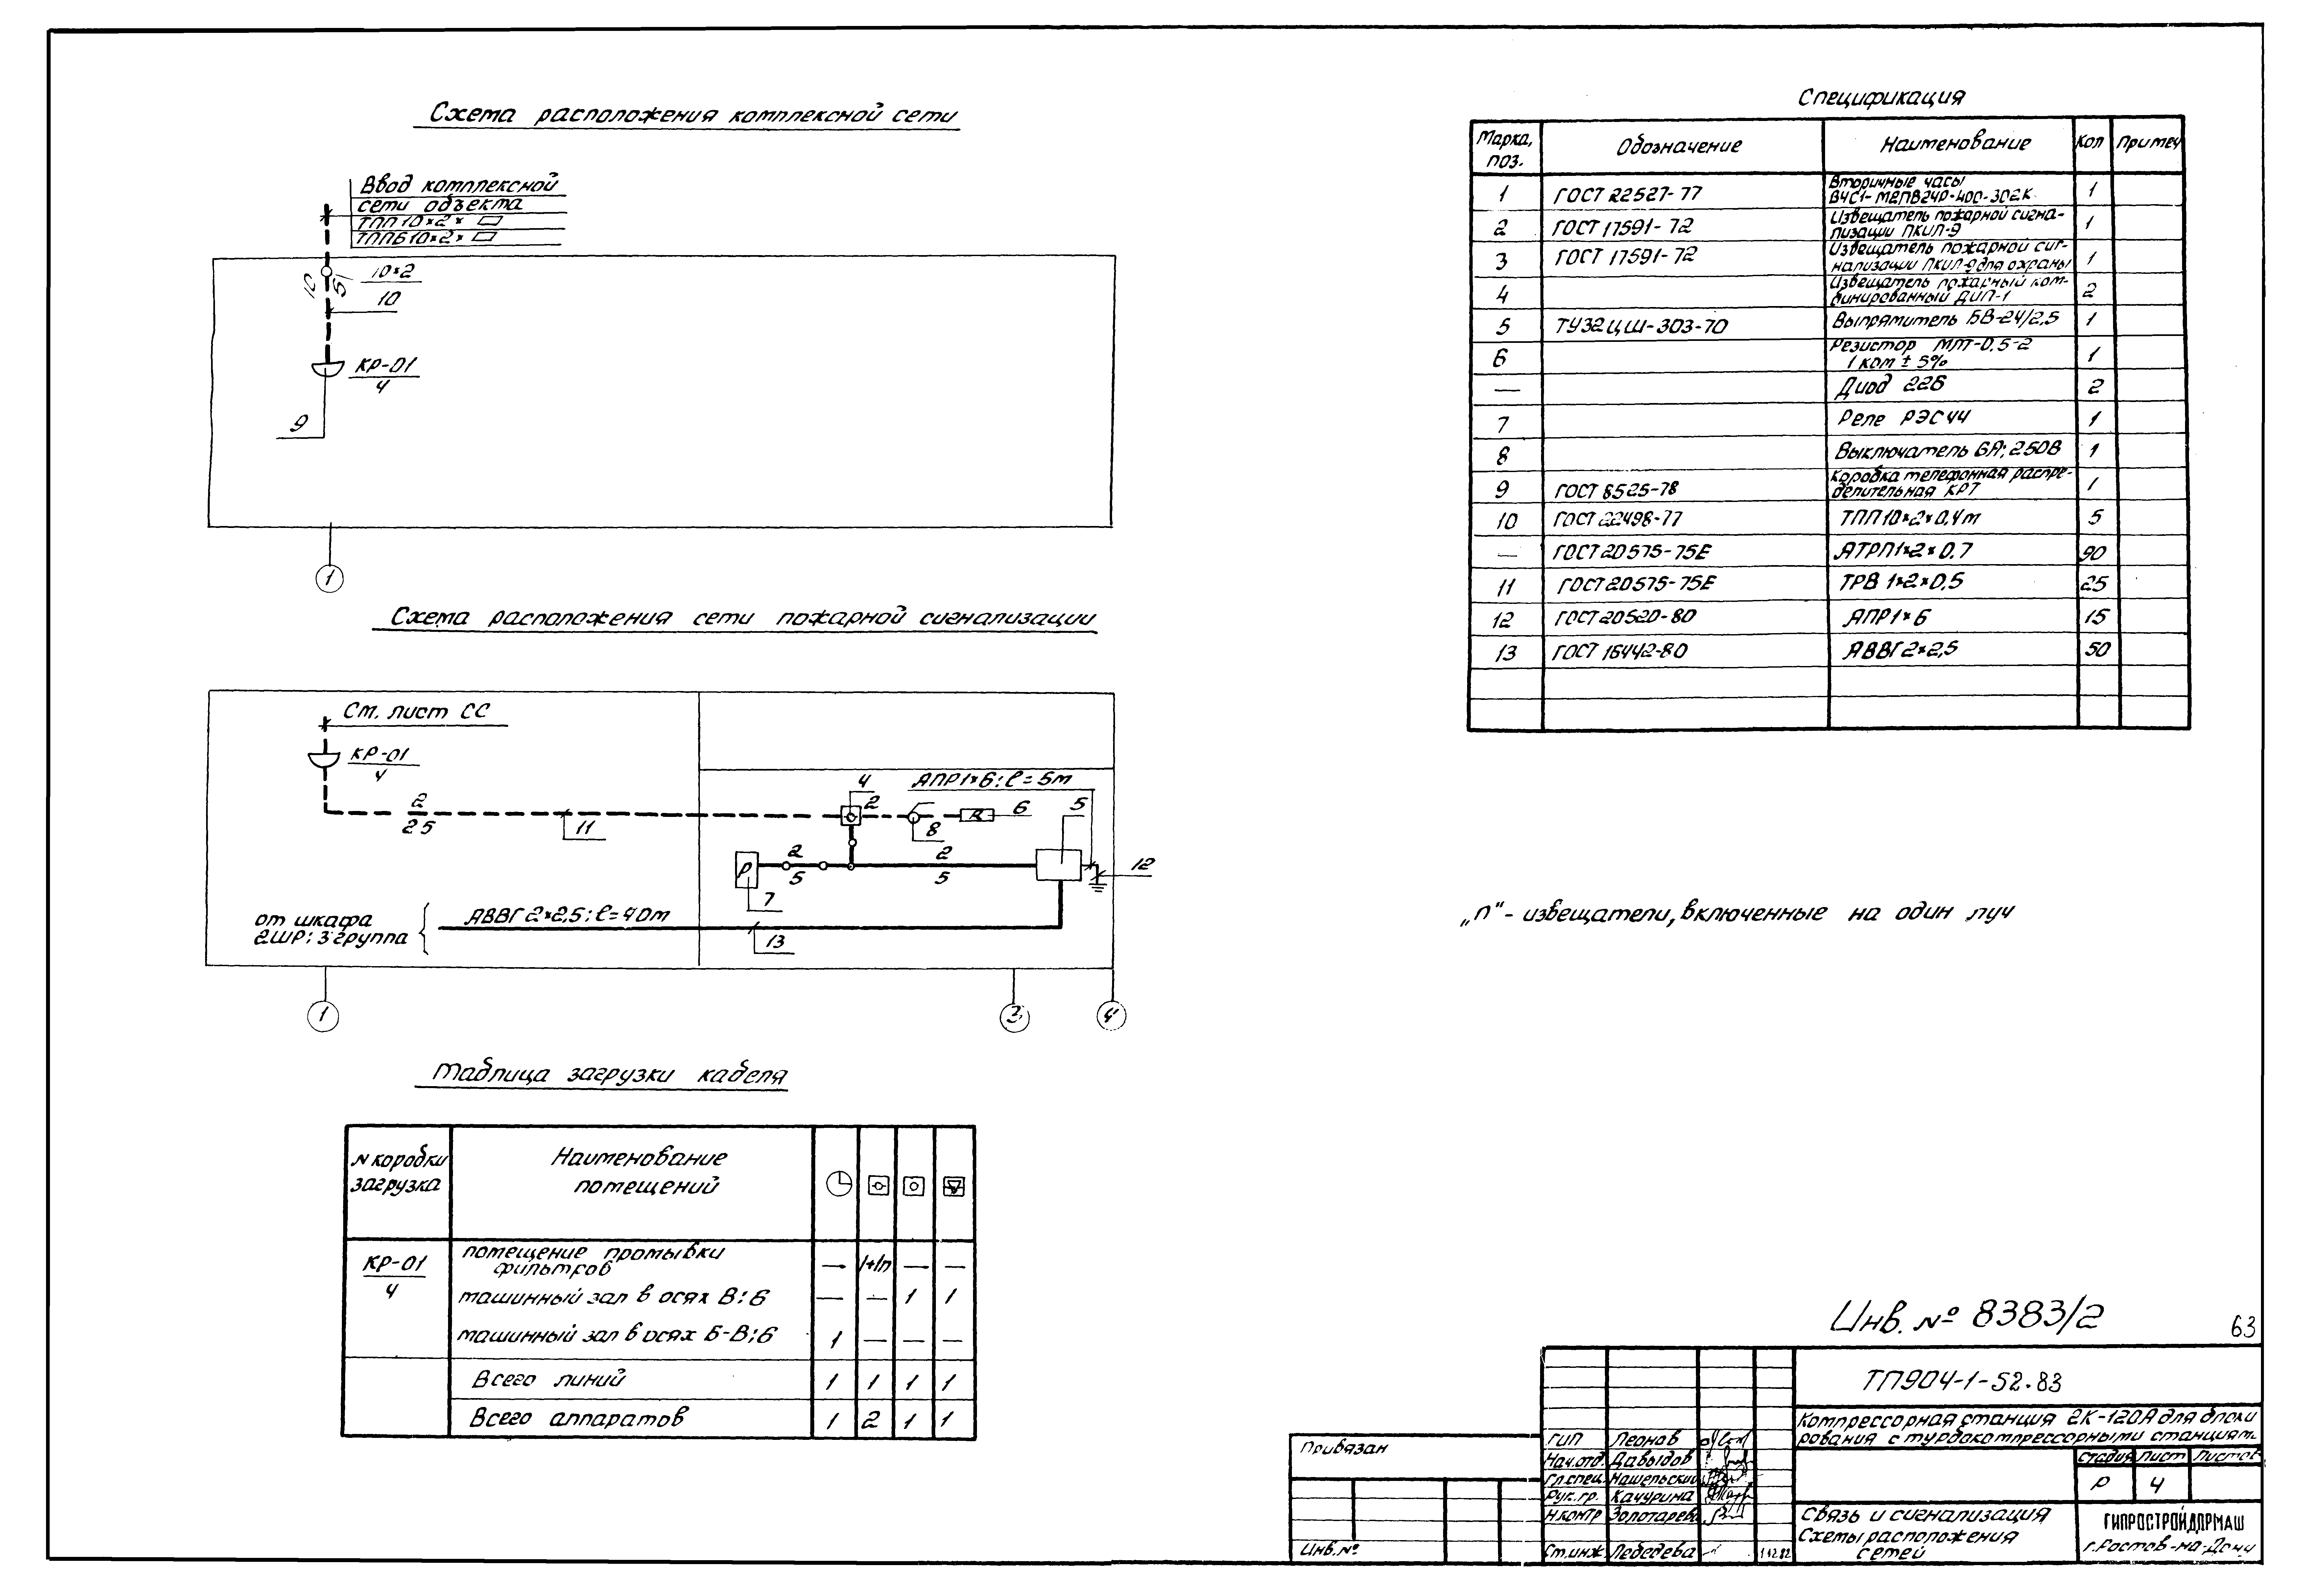 Схема расположения комплексной сети
Ввод комплексной
сети объекта
ТПП10×2×
ТППБ10×2×
10×2
10
10
5
КР-01
4
9
1
Схема расположения сети пожарной сигнализации
См. лист СС
КР-01
4
2
25
11
4
2
АПР1×6; ℓ=5м
5
8
R
6
12
Р
2
5
2
5
7
от шкафа
2ШР; 3 группа
АВВГ2×2,5; ℓ=40м
13
1
3
4
Таблица загрузки кабеля
N коробки
загрузка
Наименование
помещений
КР-01
4
помещение промывки
фильтров
— 1+1п — —
машинный зал в осях В; 6 — — 1 1
машинный зал в осях Б-В; 6 1 — — —
Всего линий 1 1 1 1
Всего аппаратов 1 2 1 1
Спецификация
Марка,
поз.
Обозначение
Наименование
Кол
Примеч
1 ГОСТ 22527-77 Вторичные часы
ВЧС1-М2ПВ24Р-400-302К 1
2 ГОСТ 17591-72 Извещатель пожарной сигна-
лизации ПКИЛ-9 1
3 ГОСТ 17591-72 Извещатель пожарной сиг-
нализации ПКИЛ-9 для охраны 1
4 Извещатель пожарный ком-
бинированный ДИП-1 2
5 ТУ32ЦШ-303-70 Выпрямитель БВ-24/2,5 1
6 Резистор МЛТ-0,5-2
1 ком ± 5% 1
— Диод 226 2
7 Реле РЭС44 1
8 Выключатель 6А; 250В 1
9 ГОСТ 8525-78 Коробка телефонная распре-
делительная КРТ 1
10 ГОСТ 22498-77 ТПП10×2×0,4м 5
— ГОСТ 20575-75Е АТРП1×2×0,7 90
11 ГОСТ 20575-75Е ТРВ 1×2×0,5 25
12 ГОСТ 20520-80 АПР1×6 15
13 ГОСТ 16442-80 АВВГ2×2,5 50
„п"- извещатели, включенные на один луч
Инв. № 8383/2
63
ТП904-1-52.83
Компрессорная станция 2К-120А для блоки
рования с турбокомпрессорными станциям.
Привязан
Инв.№
ГИП Леонов
Нач.отд. Давыдов
Гл.спец. Нашельский
Рук.гр. Качурина
Н.контр Золотарева
Ст.инж Лебедева
Стадия Лист Листов
Р 4
Связь и сигнализация
Схемы расположения
сетей
ГИПРОСТРОЙДОРМАШ
г.Ростов-на-Дону